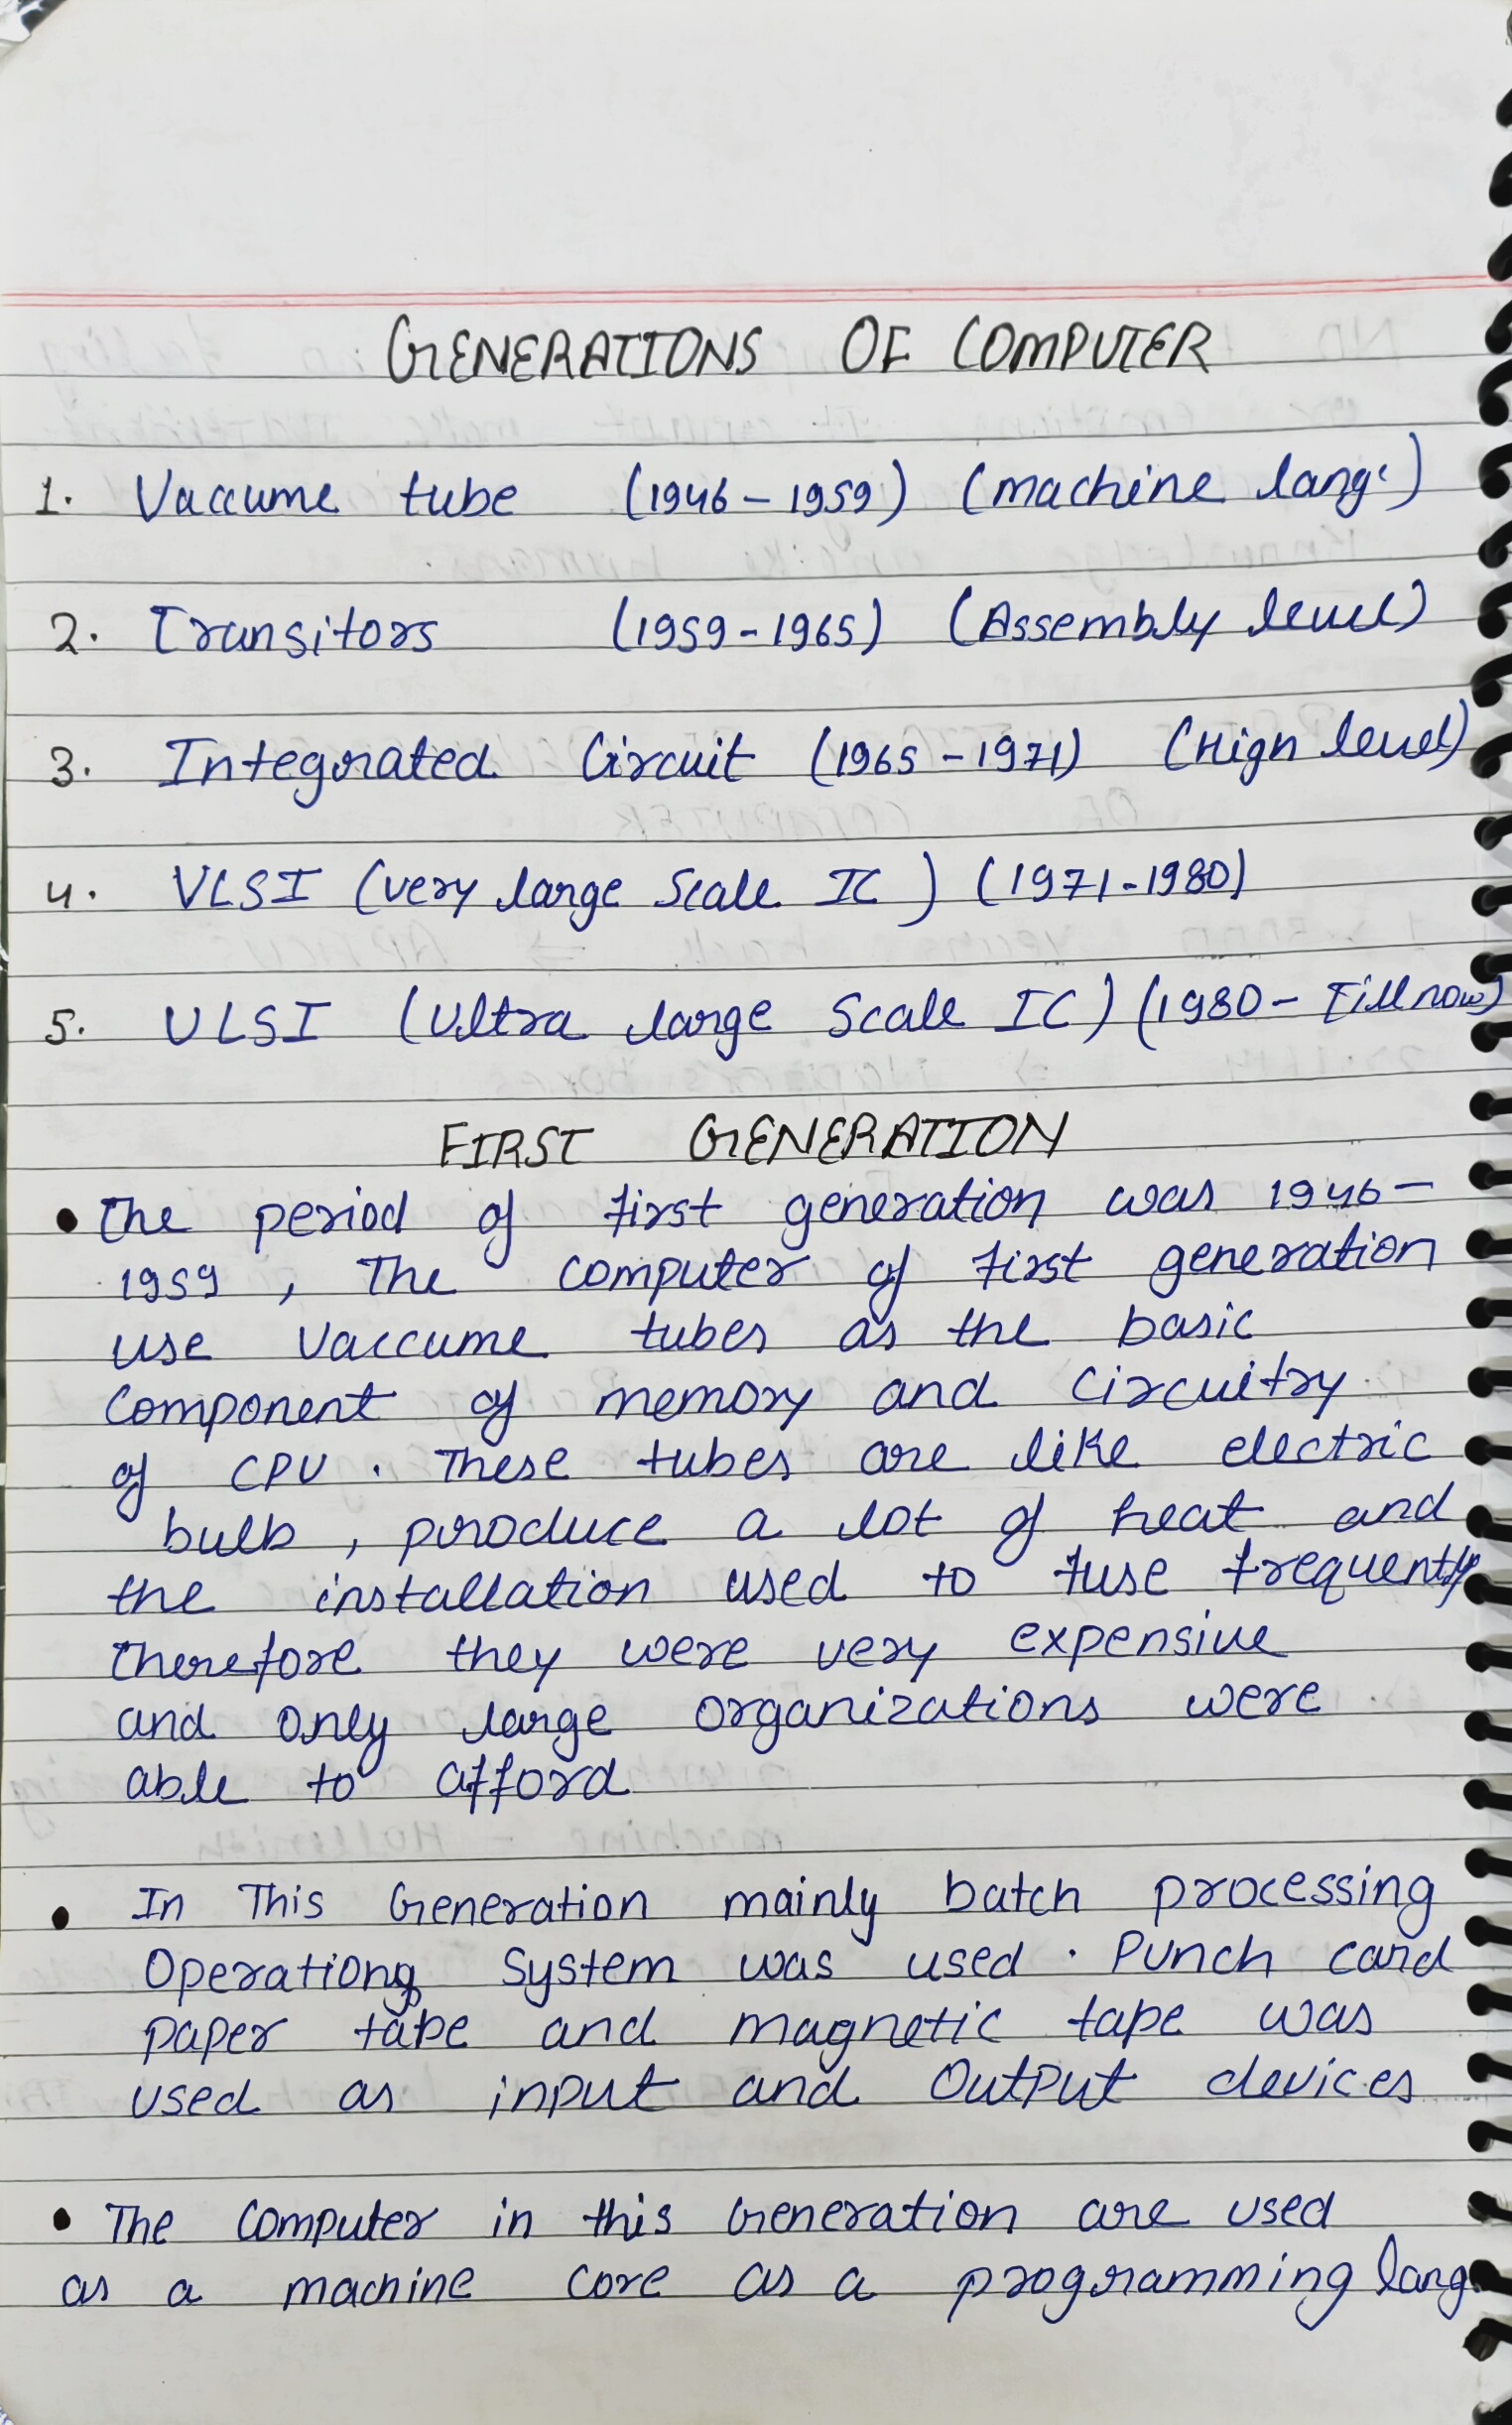 GENERATIONS OF COMPUTER
1. Vaccume tube (1946 - 1959) (machine lang.)
2. Transitors (1959-1965) (Assembly level)
3. Integrated Circuit (1965-1971) (Hign level)
4. VLSI (very large Scale IC) (1971-1980)
5. ULSI (Ultra large Scale IC) (1980- Till now)
FIRST GENERATION
• The period of first generation was 1946-
1959, The computer of first generation
use vaccume tubes as the basic
Component of memory and circuitry
of CPU. These tubes are like electric
bulb, produce a lot of heat and
the installation used to fuse frequently
therefore they were very expensive
and only large organizations were
able to afford
• In This Generation mainly batch processing
Operationg System was used. Punch card
paper tape and magnetic tape was
used as input and Output devices
• The Computer in this Generation are used
as a machine core as a programming lang.